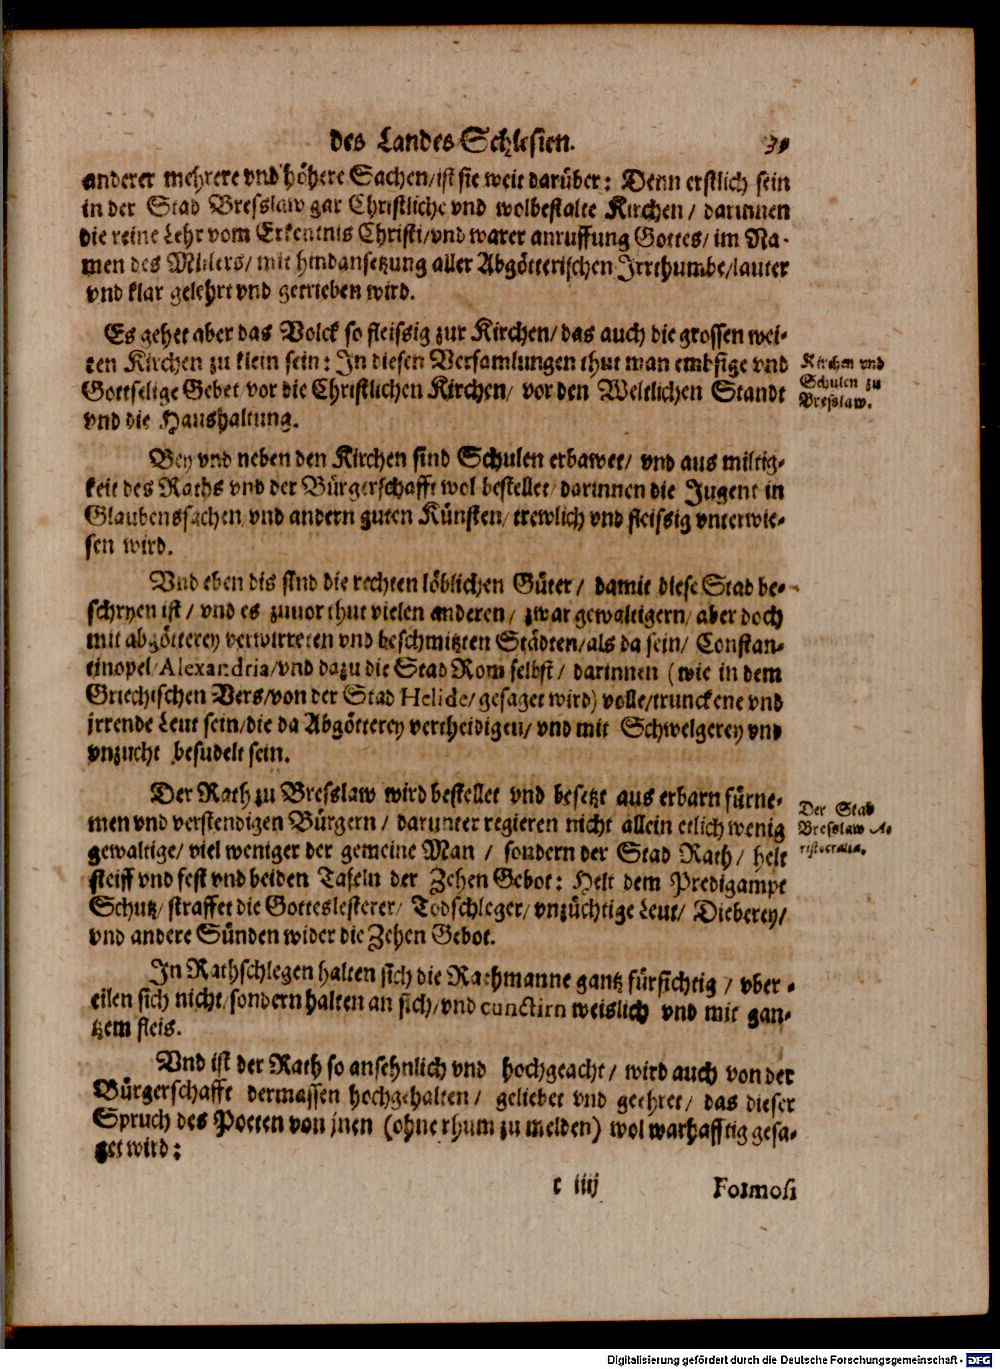 des Landes Schlesien. 39
anderer mehrere vnd höhere Sachen/ist sie weit darüber: Denn erstlich sein
in der Stad Bresslaw gar Christliche vnd wolbestalte Kirchen / darinnen
die reine Lehr vom Erkentnis Christi/vnd warer anruffung Gottes/ im Na-
men des Mitlers/ mit hindansetzung aller Abgötterischen Irrthumbe/lauter
vnd klar gelehrt vnd getrieben wird.
Es gehet aber das Volck so fleissig zur Kirchen/das auch die grossen wei-
ten Kirchen zu klein sein: In diesen Versamlungen thut man embsige vnd
Gottselige Gebet vor die Christlichen Kirchen/ vor den Weltlichen Standt
vnd die Haushaltung.
Kirchen vnd
Schulen zu
Bresslaw.
Bey vnd neben den Kirchen sind Schulen erbawet/ vnd aus miltig-
keit des Raths vnd der Bürgerschafft wol bestellet/ darinnen die Jugent in
Glaubenssachen vnd andern guten Künsten/ trewlich vnd fleissig vnterwie-
sen wird.
Vnd eben dis sind die rechten löblichen Güter / damit diese Stad be-
schryen ist / vnd es zuuor thut vielen anderen / zwar gewaltigern/ aber doch
mit abgötterey verwirreten vnd beschmitzten Städten/als da sein/ Constan-
tinopel/Alexandria/vnd dazu die Stad Rom selbst / darinnen (wie in dem
Griechischen Vers/von der Stad Helide/gesaget wird) volle/trunckene vnd
jrrende Leut sein/die da Abgötterey vertheidigen/ vnd mit Schwelgerey vnd
vnzucht besudelt sein.
Der Rath zu Bresslaw wird bestellet vnd besetzt aus erbarn fürne-
men vnd verstendigen Bürgern / darunter regieren nicht allein etlich wenig
gewaltige/ viel weniger der gemeine Man / sondern der Stad Rath / helt
steiff vnd fest vnd beiden Tafeln der Zehen Gebot: Helt dem Predigampt
Schutz/ straffet die Gotteslesterer/ Todschleger/ vnzüchtige Leut/ Dieberey/
vnd andere Sünden wider die Zehen Gebot.
Der Stad
Bresslaw A-
ristocratia.
In Rathschlegen halten sich die Rathmanne gantz fürsichtig / vber-
eilen sich nicht/sondern halten an sich/vnd cunctirn weislich vnd mit gan-
tzem fleis.
Vnd ist der Rath so ansehnlich vnd hochgeacht/ wird auch von der
Bürgerschafft dermassen hochgehalten/ geliebet vnd geehret/ das dieser
Spruch des Poeten von jnen (ohne rhum zu melden) wol warhafftig gesa-
get wird:
c iiij Formosi
Digitalisierung gefördert durch die Deutsche Forschungsgemeinschaft - DFG